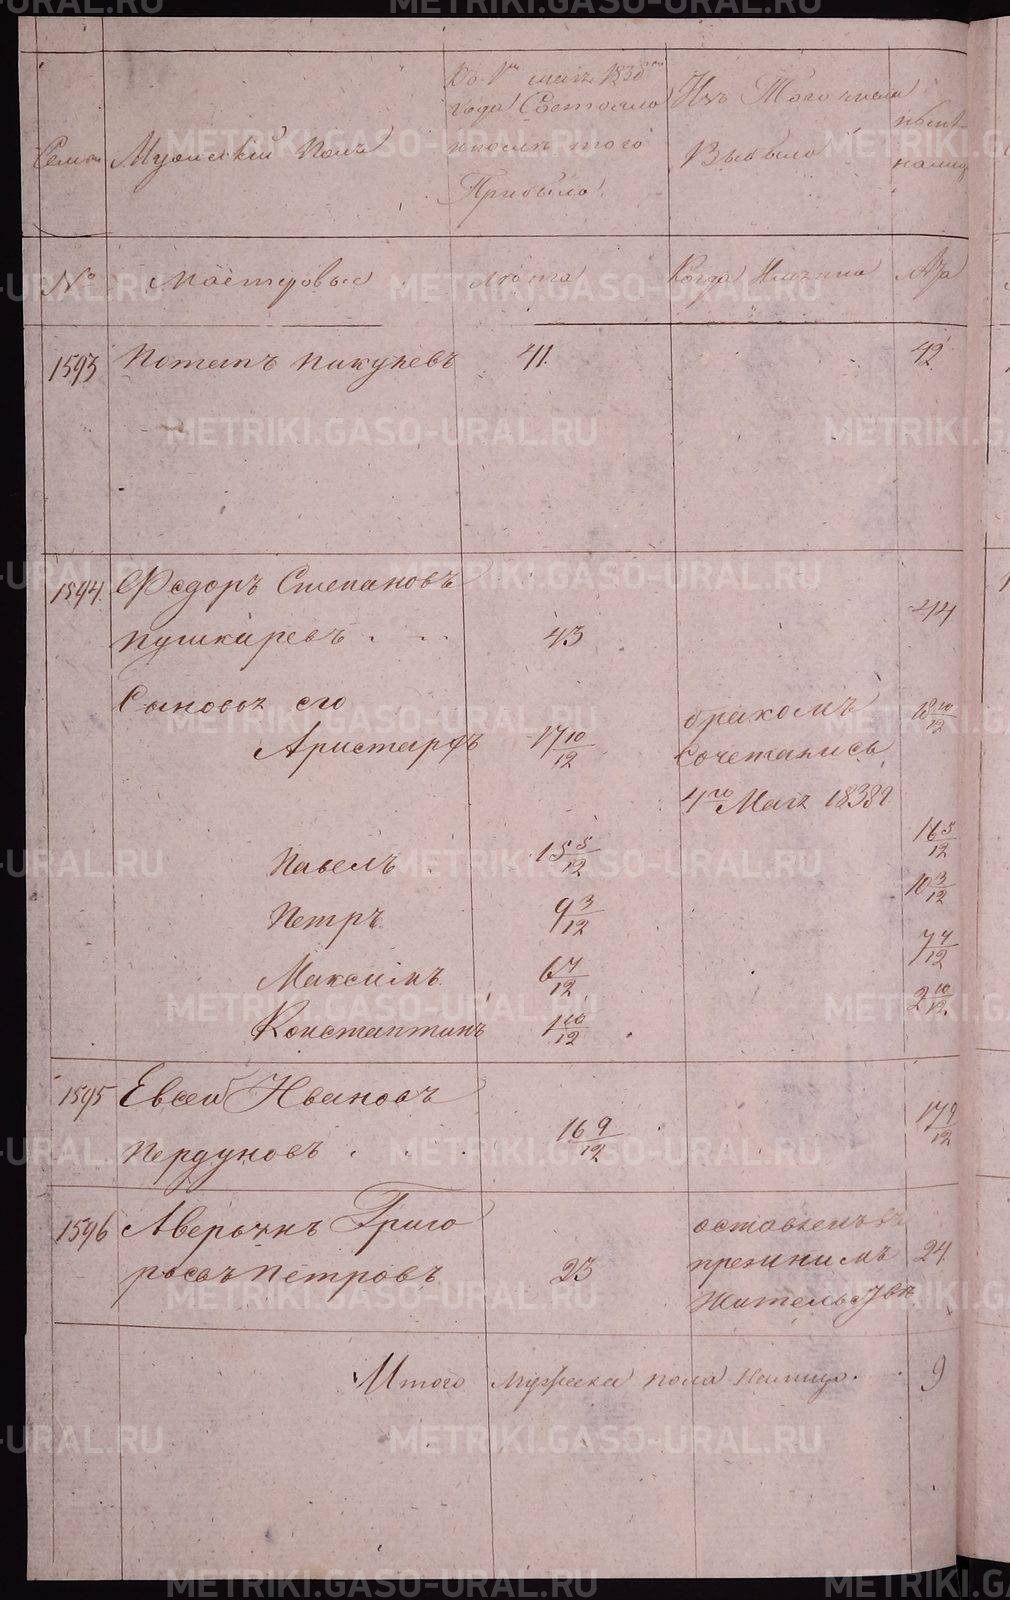 METRIKI.GASO-URAL.RU
До 1го маія 1838го
года Состояло
и после того
Прибыло
Изъ Того числа
Выбыло
ныне
налицо
Семьи
Мужский Полъ
№
Мастеровые
лета
Когда Именно
лета
1593
Потапъ Пикулевъ
41.
42
1594.
Федоръ Степановъ
Пушкаревъ . . .
43
44
Сыновья его
Аристархъ
17 10/12
бракомъ
Сочетались
4го Маія 1838г
18 10/12
Павелъ
15 5/12
16 5/12
Петръ
9 3/12
10 3/12
Максимъ
6 4/12
7 4/12
Константинъ
1 10/12
2 10/12
1595
Евсей Ивановъ
Пердуновъ . . .
16 9/12
17 9/12
1596
Аверьянъ Григо
рьевъ Петровъ
23
оставленъ въ
прежнимъ
Жительстве
24
Итого мужеска пола налицо . .
9